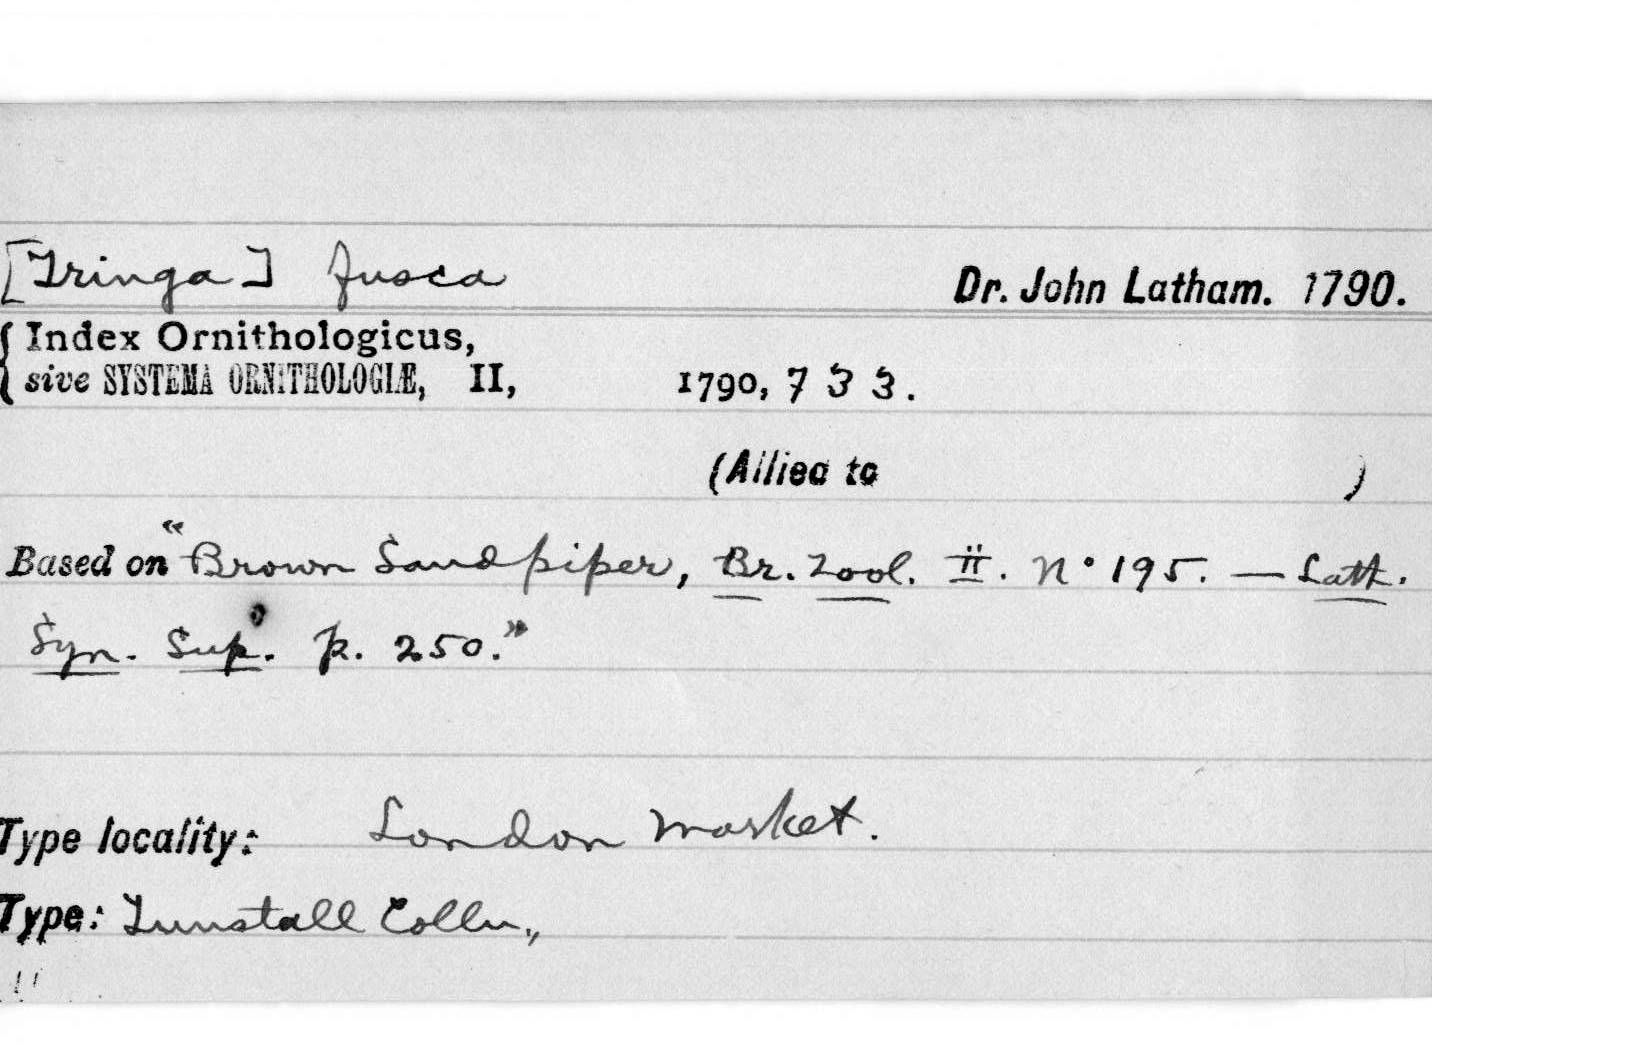 [Tringa] fusca
Dr. John Latham. 1790.
Index Ornithologicus,
sive SYSTEMA ORNITHOLOGIÆ, II, 1790, 733.
(Allied to )
Based on "Brown Sandpiper, Br. Zool. ii. No 195. — Lath.
Syn. Sup. p. 250."
Type locality: London market.
Type: Tunstall Colln.,